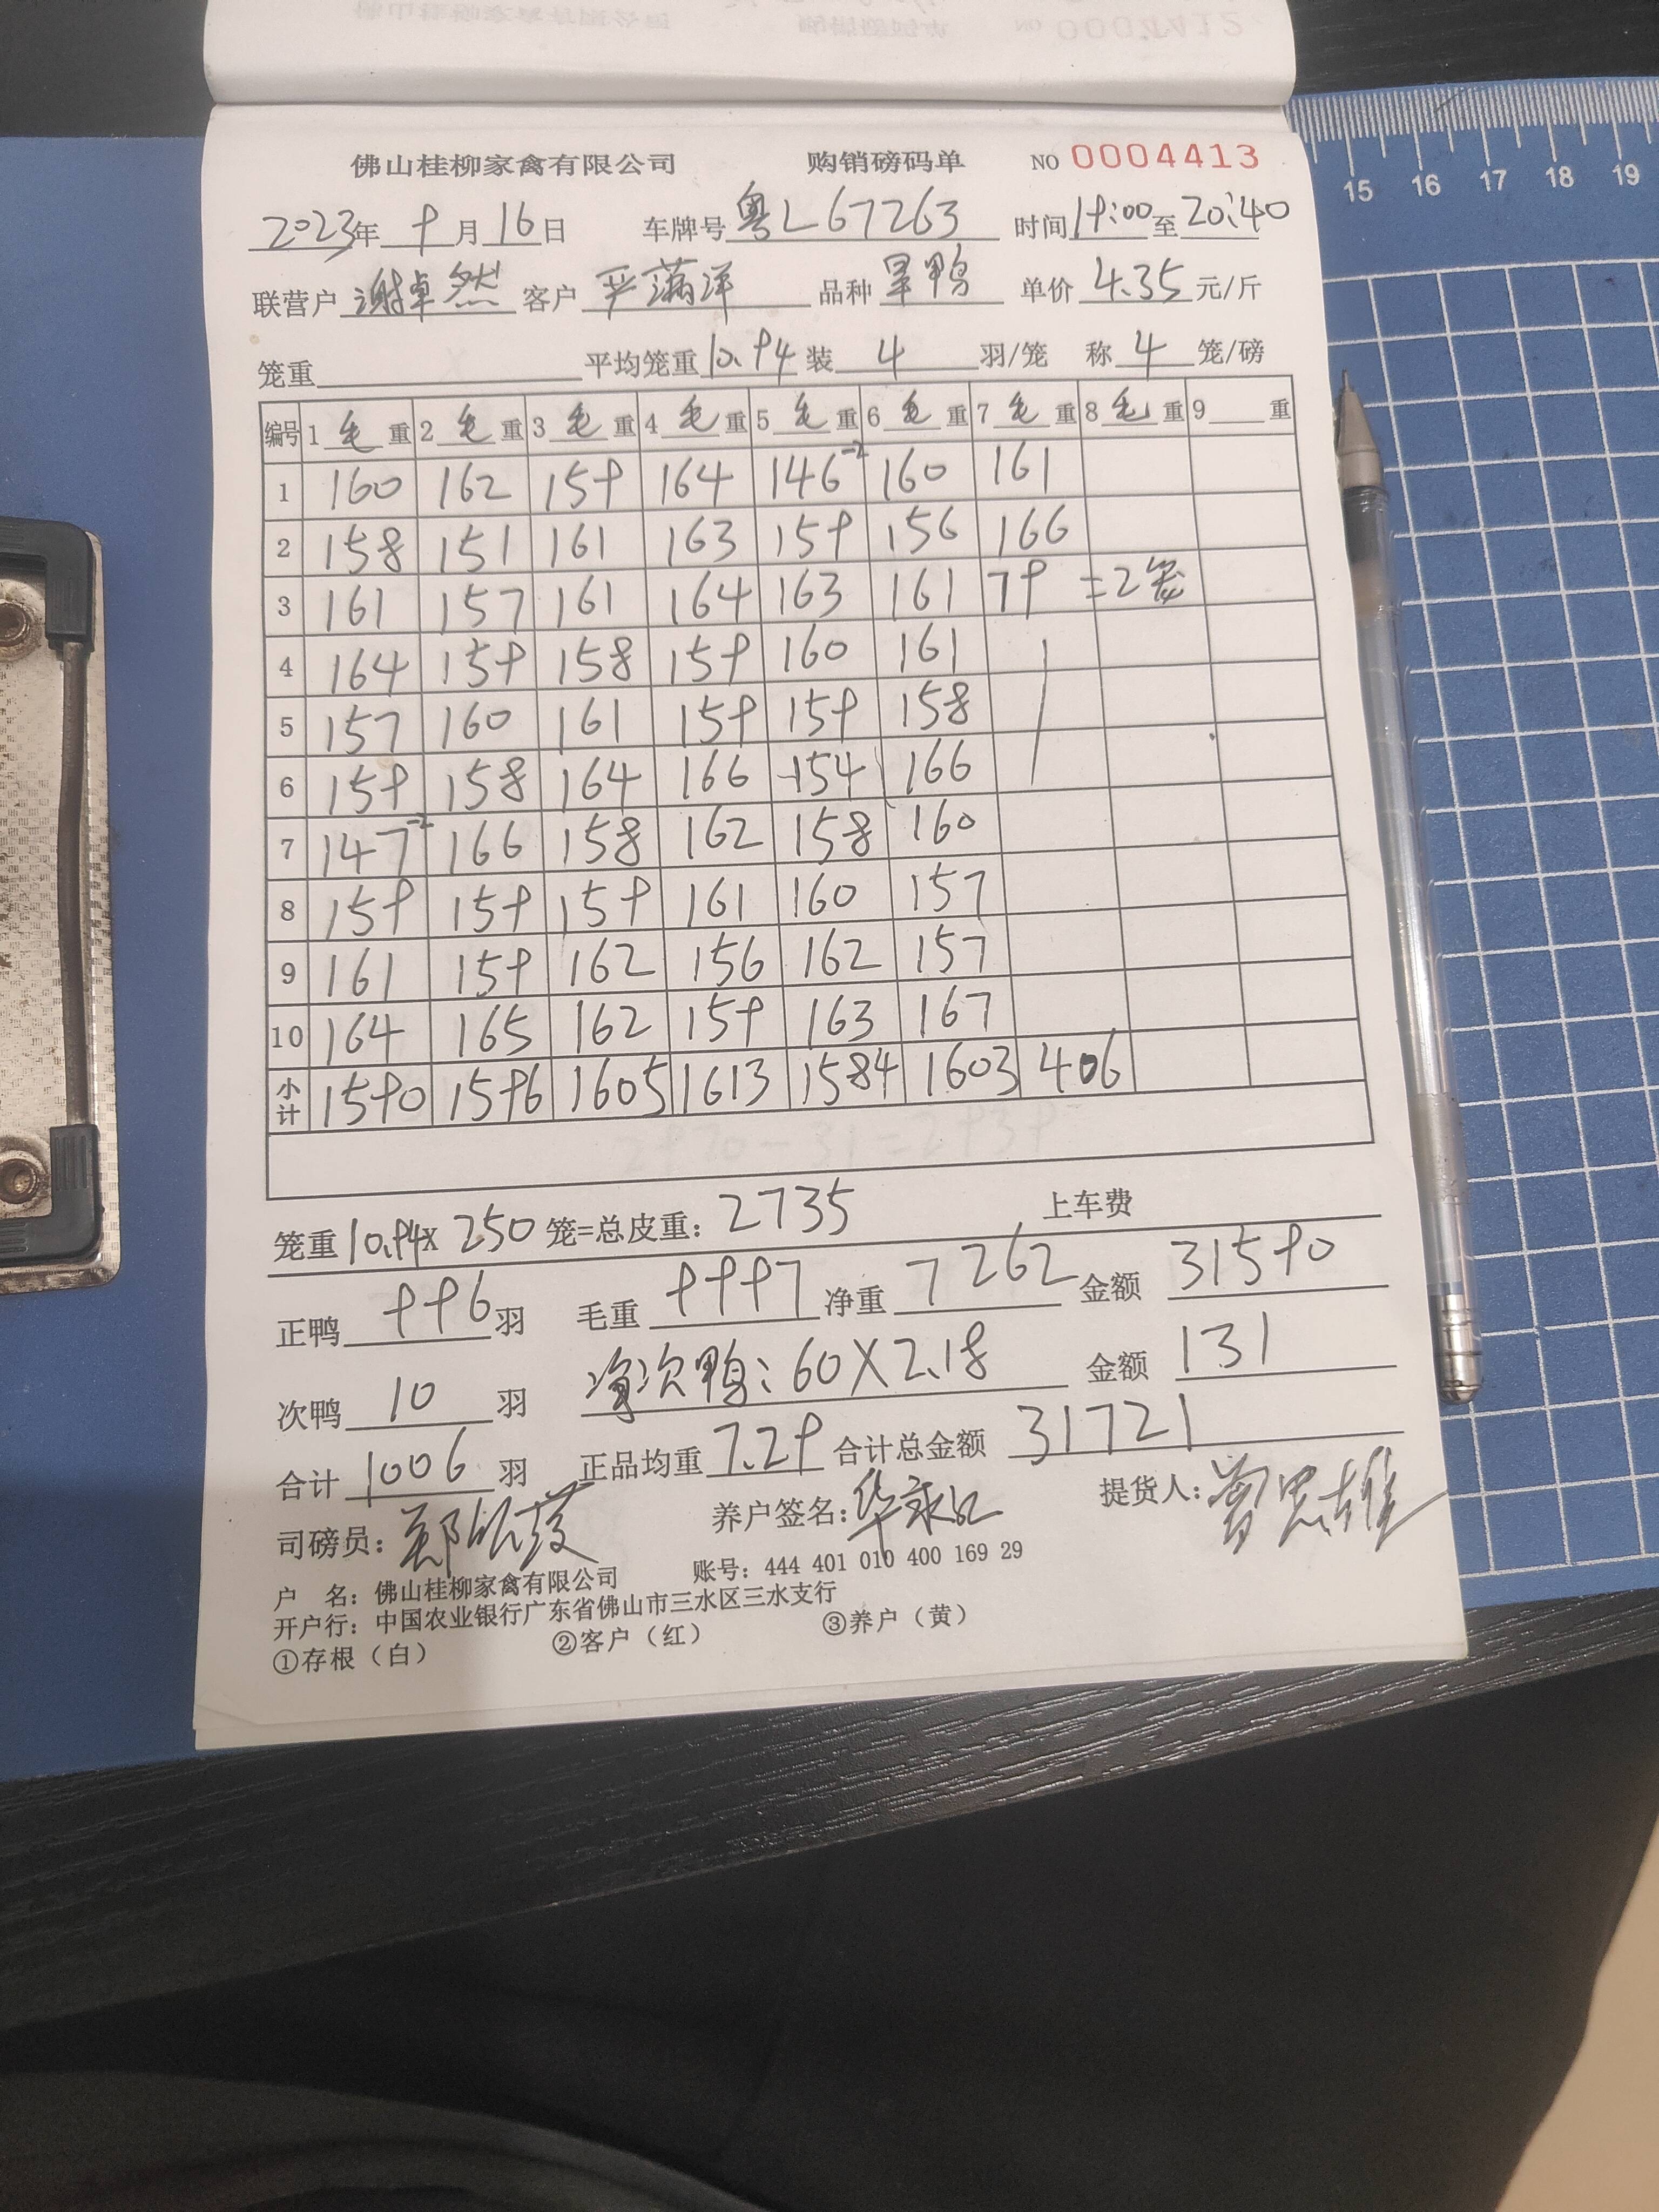 佛山桂柳家禽有限公司 购销磅码单 NO 0004413
2023年 9月16日 车牌号 粤L67263 时间19:00至20:40
联营户 谢卓然 客户 严满洋 品种 旱鸭 单价 4.35 元/斤
笼重 平均笼重10.94 装 4 羽/笼 称 4 笼/磅
编号 1 毛 重 2 毛 重 3 毛 重 4 毛 重 5 毛 重 6 毛 重 7 毛 重 8 毛 重 9 重
1 160 162 159 164 146-2 160 161
2 158 151 161 163 159 156 166
3 161 157 161 164 163 161 79 =2笼
4 164 159 158 159 160 161
5 157 160 161 159 159 158
6 159 158 164 166 154 166
7 147-2 166 158 162 158 160
8 159 159 159 161 160 157
9 161 159 162 156 162 157
10 164 165 162 159 163 167
小计 1590 1596 1605 1613 1584 1603 406
笼重10.94x 250 笼=总皮重: 2735 上车费
正鸭 996 羽 毛重 9997 净重 7262 金额 31590
次鸭 10 羽 净次鸭: 60X2.18 金额 131
合计 1006 羽 正品均重 7.29 合计总金额 31721
司磅员: 养户签名: 提货人: 曾思雄
户 名: 佛山桂柳家禽有限公司 账号: 444 401 010 400 169 29
开户行: 中国农业银行广东省佛山市三水区三水支行
①存根（白） ②客户（红） ③养户（黄）
15 16 17 18 19